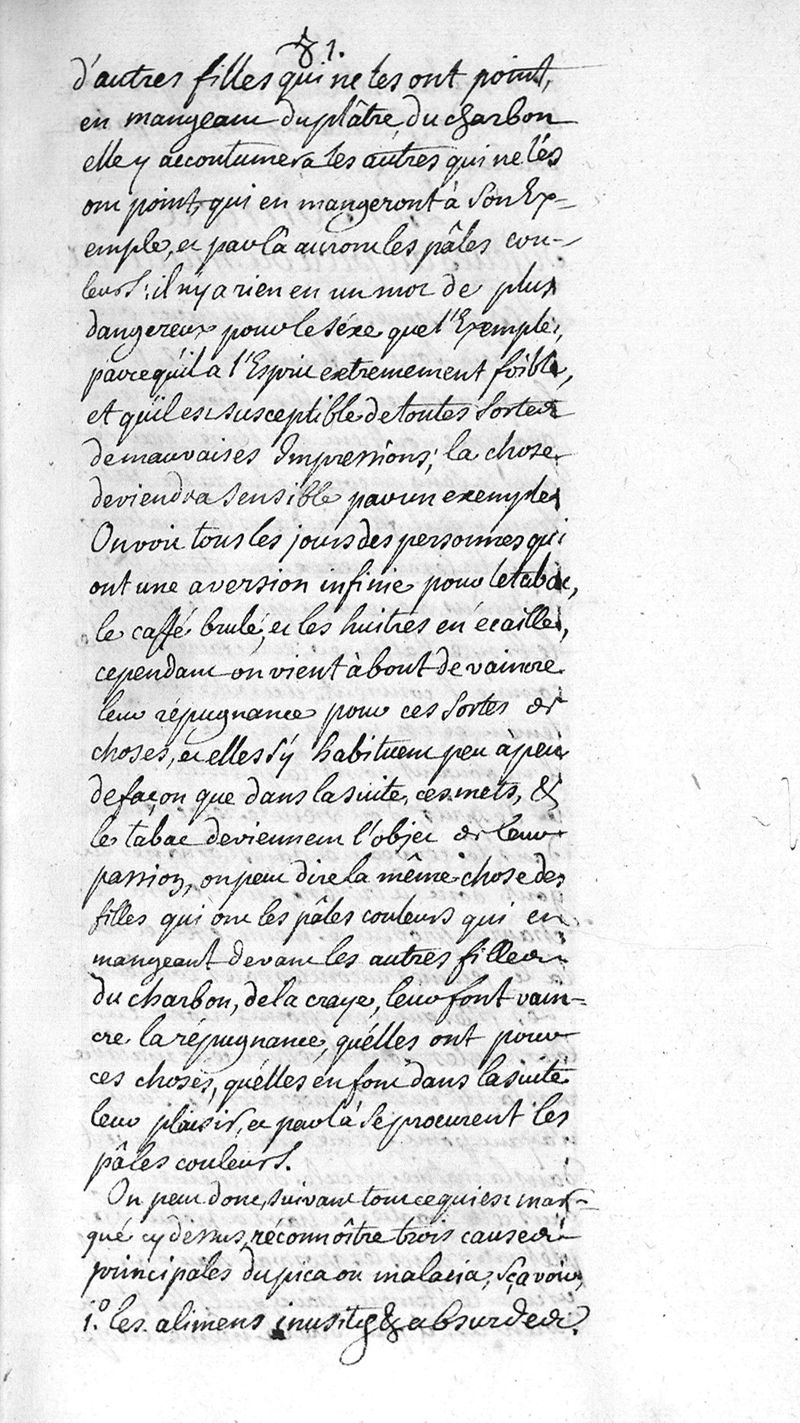 81.
d'autres filles qui ne les ont point,
en mangeant du plâtre du charbon
elle y accoutumera les autres qui ne lés
ont point, qui en mangeront à son Ex-
emple, et par là auront les pâles cou-
leurs: il n'y a rien en un mot de plus
dangereux pour le séxe que l'Exemple,
parcequ'il a l'Esprit extremement foible,
et qu'il est susceptible de toutes sortes
de mauvaises Impressions; la chose
deviendra sensible par un exemple
On voit tous les jours des personnes qui
ont une aversion infinie pour le tabac,
le caffé brulé, et les huitres en écailles,
cependant on vient à bout de vaincre
leur répugnance pour ces sortes de
choses, et elles s'y habituent peu à peu
de façon que dans la suite, ces mets, &
le tabac deviennent l'objet de leur
passion, on peut dire la même chose des
filles qui ont les pâles couleurs qui en
mangeant devant les autres filles
du charbon, de la craye, leur font vain-
cre la répugnance, qu'élles ont pour
ces choses, qu'élles en font dans la suite
leur plaisir, et par là se procurent les
pâles couleurs.
On peut donc, suivant tout ce qui est mar-
qué cy dessus, réconnoître trois causes
principales du pica ou malacia, sçavoir,
1.° les alimens inusités & absurdes.